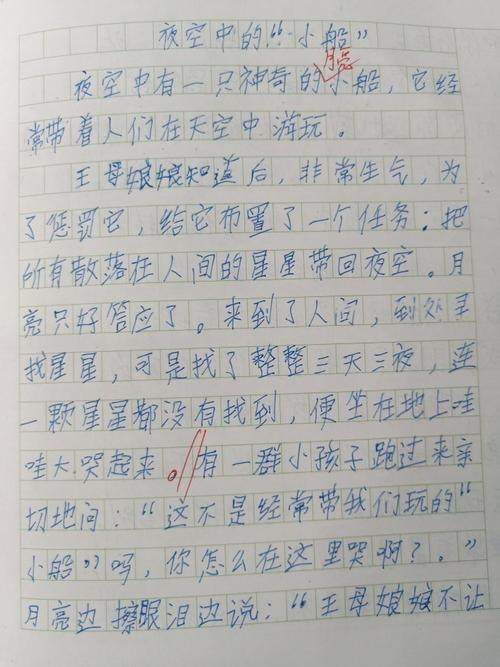 夜空中的“小船”
月亮
夜空中有一只神奇的小船，它经
常带着人们在天空中游玩。
王母娘娘知道后，非常生气，为
了惩罚它，给它布置了一个任务：把
所有散落在人间的星星带回夜空。月
亮只好答应了。来到了人间，到处寻
找星星，可是找了整整三天三夜，连
一颗星星都没有找到，便坐在地上哇
哇大哭起来。有一群小孩子跑过来亲
切地问：“这不是经常带我们玩的“
小船”吗，你怎么在这里哭啊？。”
月亮边擦眼泪边说：“王母娘娘不让